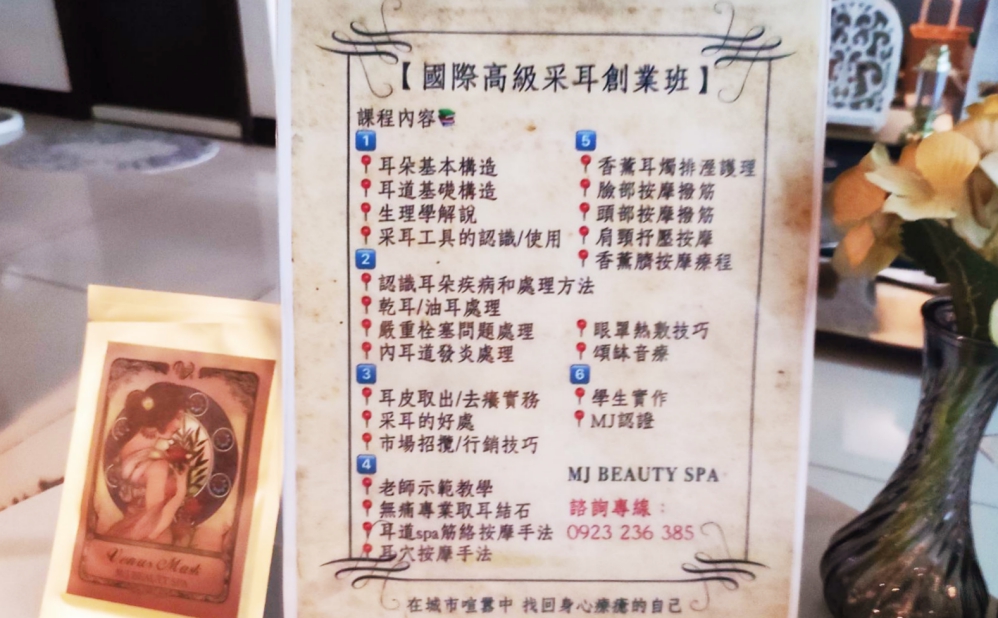 【國際高級采耳創業班】
課程內容📚
1
📍耳朵基本構造
📍耳道基礎構造
📍生理學解說
📍采耳工具的認識/使用
2
📍認識耳朵疾病和處理方法
📍乾耳/油耳處理
📍嚴重栓塞問題處理
📍內耳道發炎處理
3
📍耳皮取出/去癢實務
📍采耳的好處
📍市場招攬/行銷技巧
4
📍老師示範教學
📍無痛專業取耳結石
📍耳道spa筋絡按摩手法
📍耳穴按摩手法
5
📍香薰耳燭排溼護理
📍臉部按摩撥筋
📍頭部按摩撥筋
📍肩頸抒壓按摩
📍香薰臍按摩療程
📍眼罩熱敷技巧
📍頌缽音療
6
📍學生實作
📍MJ認證
MJ BEAUTY SPA
諮詢專線：
0923 236 385
在城市喧囂中 找回身心療癒的自己
Venus Mask
MJ BEAUTY SPA